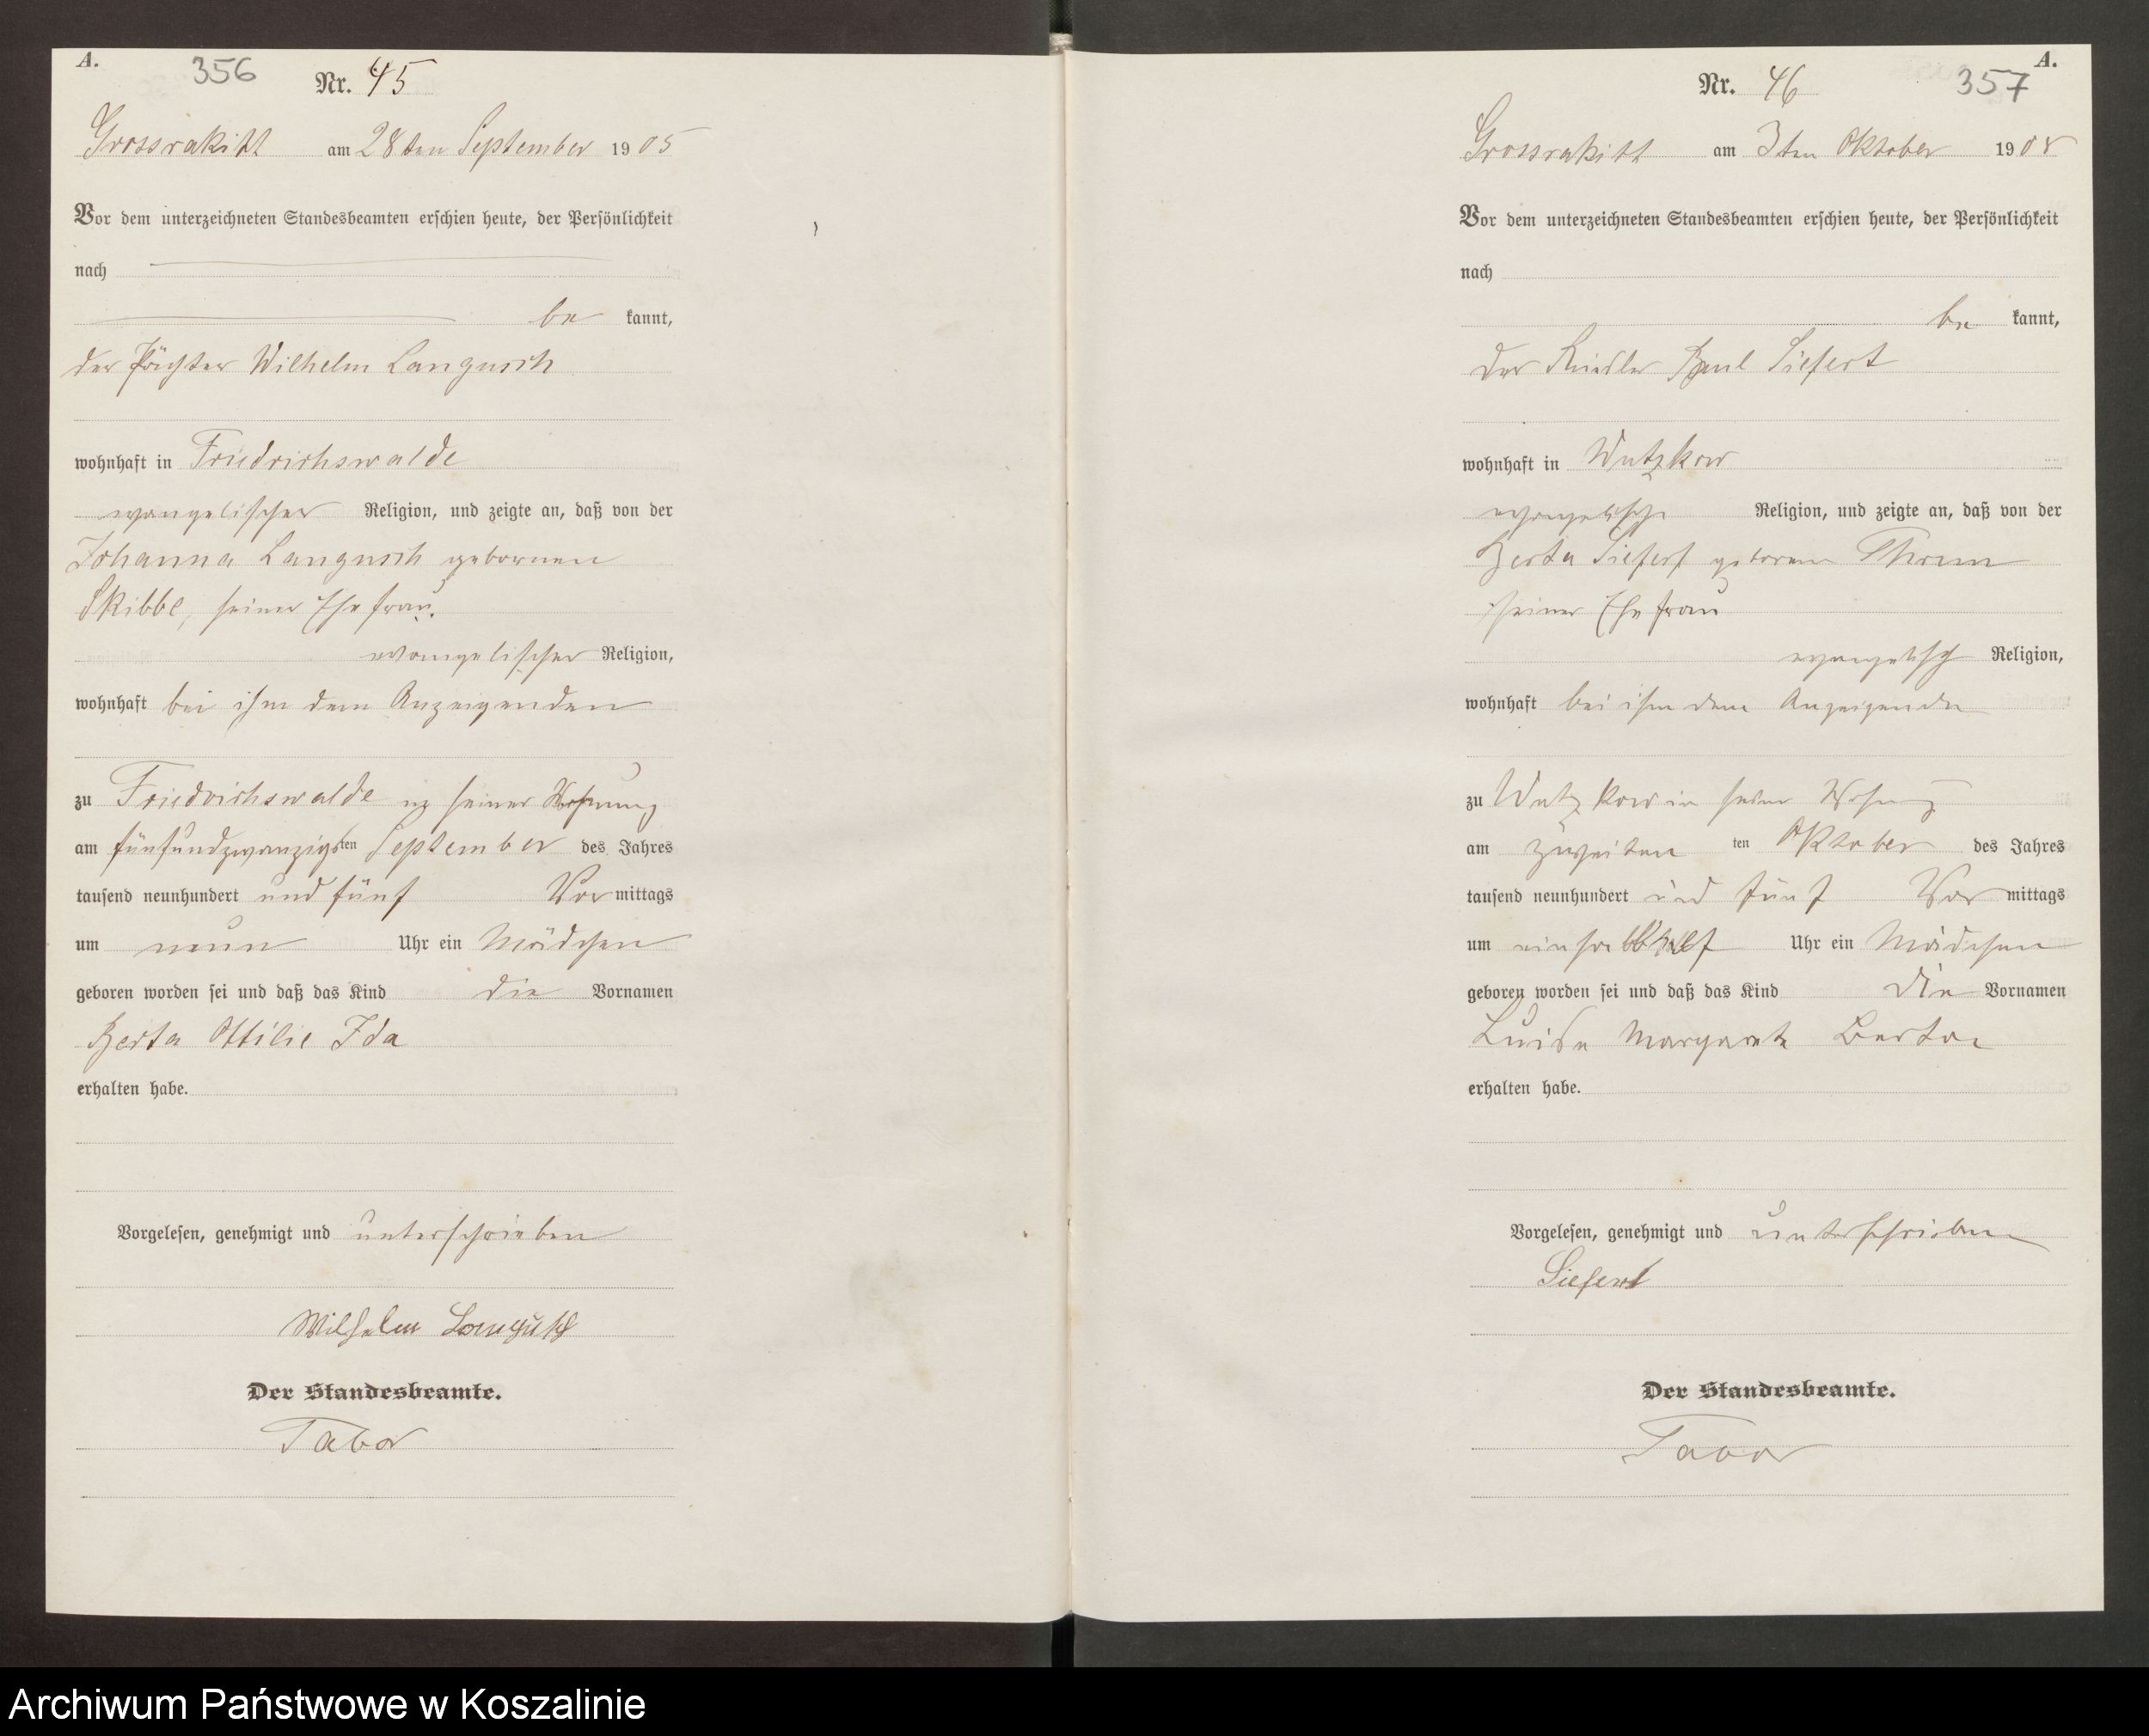 A.
356
Nr. 45
Grossrakitt am 28ten September 1905
Vor dem unterzeichneten Standesbeamten erschien heute, der Persönlichkeit
nach
be kannt,
der Pächter Wilhelm Langusch
wohnhaft in Friedrichswalde
evangelischer Religion, und zeigte an, daß von der
Johanna Langusch gebornen
Skibbe, seiner Ehefrau.
evangelischer Religion,
wohnhaft bei ihm dem Anzeigenden
zu Friedrichswalde in seiner Wohnung
am fünfundzwanzigsten September des Jahres
tausend neunhundert und fünf Vormittags
um neun Uhr ein Mädchen
geboren worden sei und daß das Kind die Vornamen
Berta Ottilie Ida
erhalten habe.
Vorgelesen, genehmigt und unterschrieben
Wilhelm Langusch
Der Standesbeamte.
Tabor
A.
Nr. 46
357
Grossrakitt am 3ten Oktober 1905
Vor dem unterzeichneten Standesbeamten erschien heute, der Persönlichkeit
nach
be kannt,
der Paul Siefert
wohnhaft in Wutzkow
evangelische Religion, und zeigte an, daß von der
Berta Siefert geborene
seiner Ehefrau
evangelisch Religion,
wohnhaft bei ihm dem Anzeigende
zu Wutzkow in seiner Wohnung
am zweiten ten Oktober des Jahres
tausend neunhundert und fünf Vormittags
um Uhr ein Mädchen
geboren worden sei und daß das Kind die Vornamen
Luise Margarete Berta
erhalten habe.
Vorgelesen, genehmigt und unterschrieben
Siefert
Der Standesbeamte.
Tabor
Archiwum Państwowe w Koszalinie